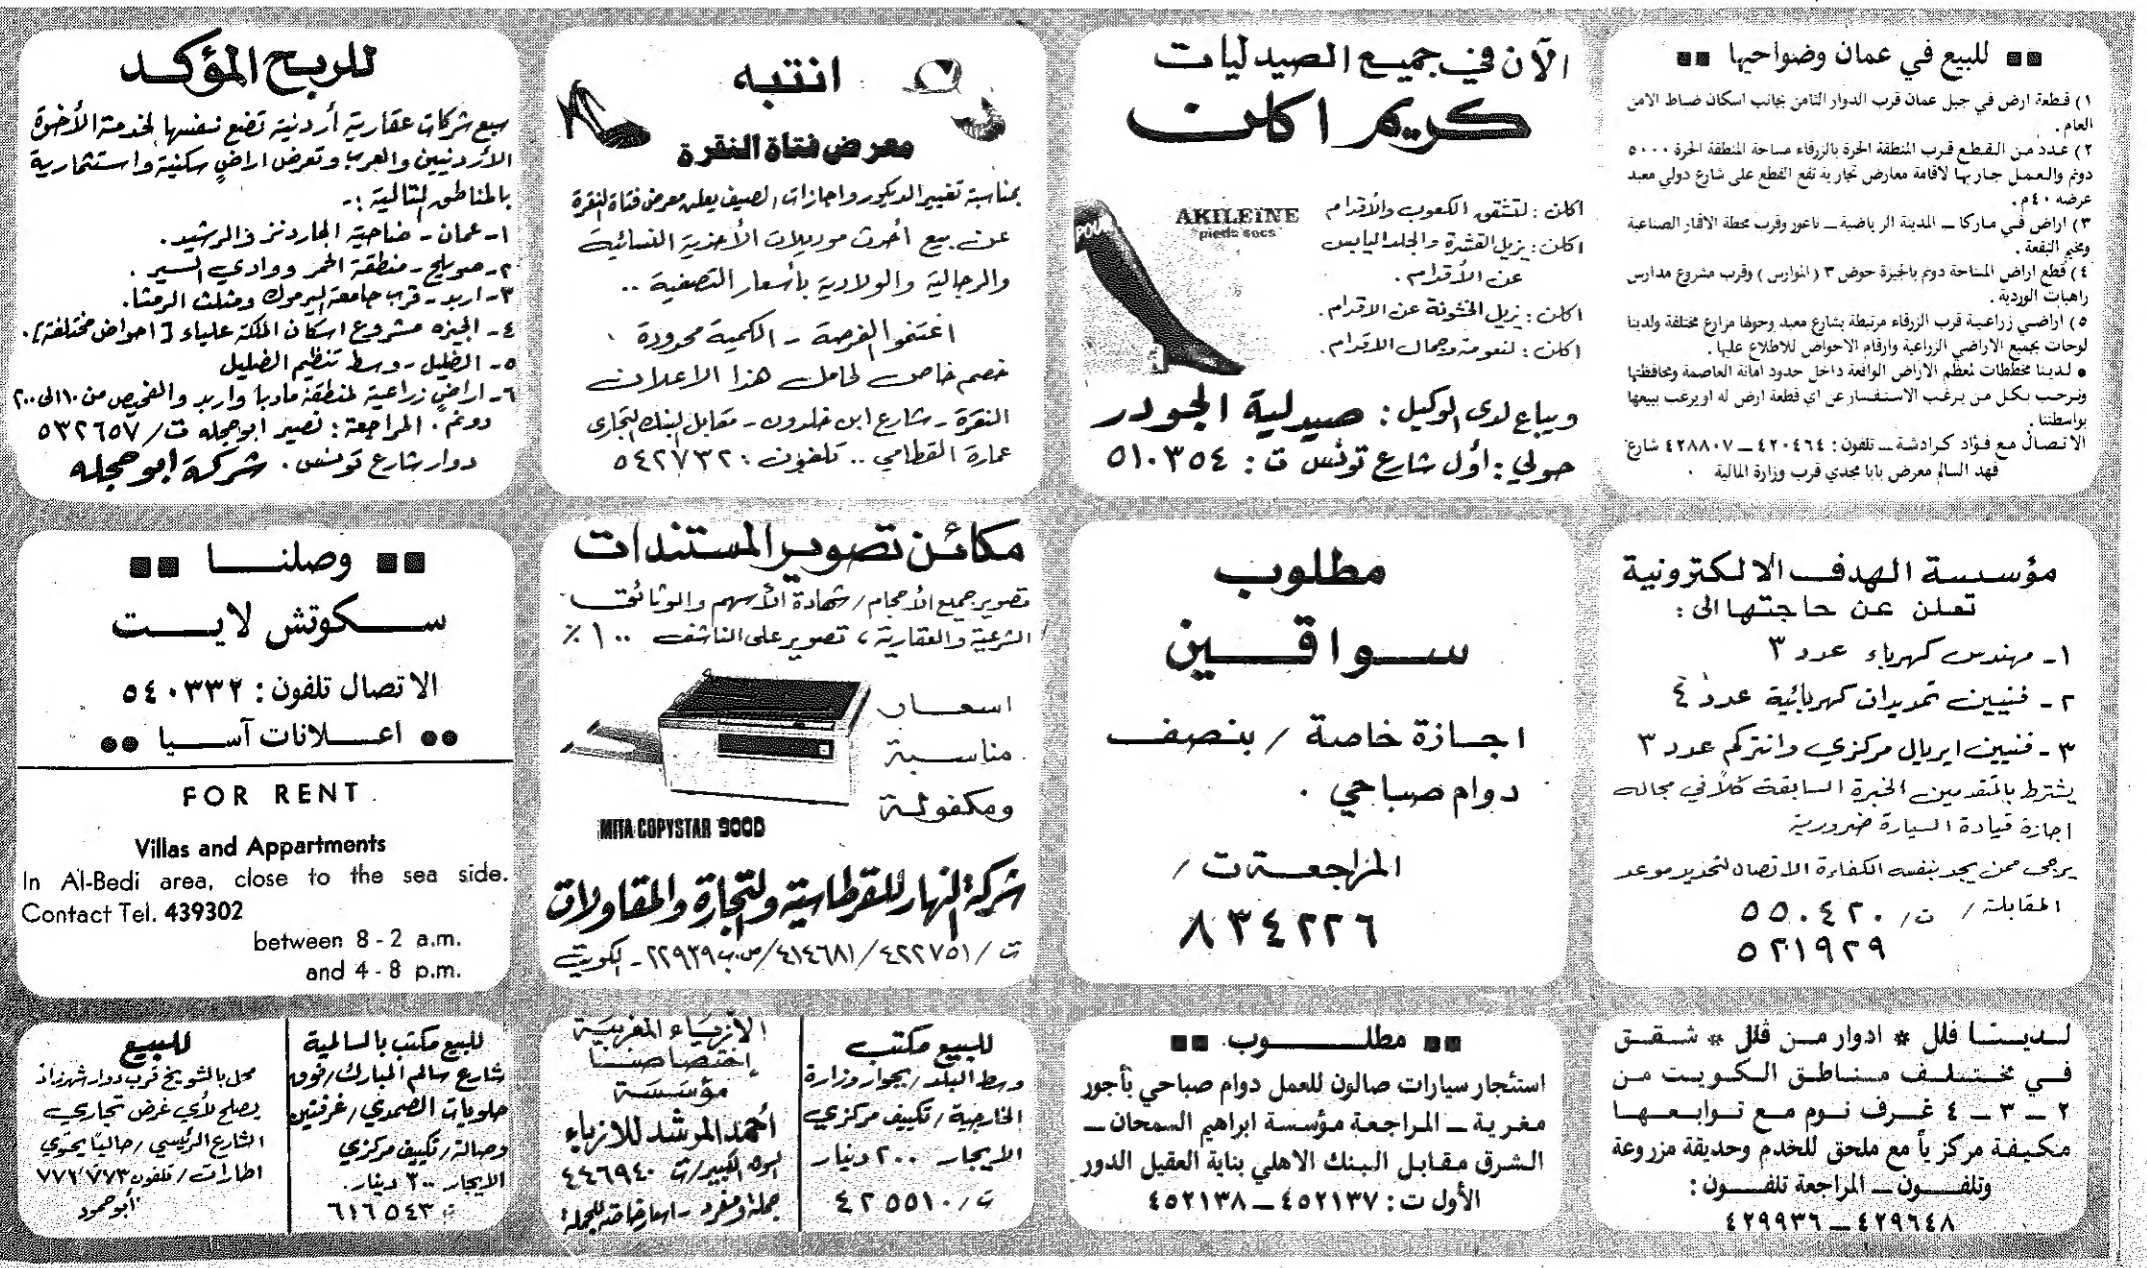 ■■ للبيع في عمان وضواحيها ■■
١) قطعة ارض في جبل عمان قرب الدوار الثامن بجانب اسكان ضباط الامن
العام .
٢) عدد من القطع قرب المنطقة الحرة بالزرقاء مساحة المنطقة الحرة ٥٠٠٠
دونم والعمل جار بها لاقامة معارض تجارية تقع القطع على شارع دولي معبد
عرضه ٤٠م .
٣) اراض في ماركا ــ المدينة الرياضية ــ ناعور وقرب محطة الاقمار الصناعية
ومخيم البقعة .
٤) قطع اراض المساحة دونم بالجيزة حوض ٣ ( الموارس ) وقرب مشروع مدارس
راهبات الوردية .
٥) اراضي زراعية قرب الزرقاء مرتبطة بشارع معبد وحولها مزارع مختلفة ولدينا
لوحات بجميع الاراضي الزراعية وارقام الاحواض للاطلاع عليها .
● لدينا مخططات لمعظم الاراض الواقعة داخل حدود امانة العاصمة ومحافظتها
ونرحب بكل من يرغب الاستفسار عن اي قطعة ارض له او يرغب ببيعها
بواسطتنا .
الاتصال مع فؤاد كرادشة ــ تلفون : ٤٢٠٤٦٤ ــ ٤٢٨٨٠٧ شارع
فهد السالم معرض بابا مجدي قرب وزارة المالية .
الآن في جميع الصيدليات
كريم اكلن
اكلن : لتشقق الكعوب والأقدام
اكلن : يزيل القشرة والجلد اليابس
عن الأقدام .
اكلن : يزيل الخشونة عن الاقدام .
اكلن : لنعومة وجمال الاقدام .
AKILEINE
pieds secs
ويباع لدى الوكيل : صيدلية الجودر
حولي : أول شارع تونس ت : ٥١٠٣٥٤
انتبه
معرض فتاة النقرة
بمناسبة تغيير الديكور واجازات الصيف يعلن معرض فتاة النقرة
عن بيع أحدث موديلات الأحذية النسائية
والرجالية والولادية بأسعار التصفية ..
اغتنموا الفرصة - الكمية محدودة .
خصم خاص لحامل هذا الاعلان
النقرة - شارع ابن خلدون - مقابل البنك التجاري
عمارة القطامي .. تلفون : ٥٤٢٧٣٢
للربح المؤكد
سبع شركات عقارية أردنية تضع نفسها لخدمة الأخوة
الأردنيين والعرب وتعرض اراضٍ سكنية واستثمارية
بالمناطق التالية :-
١- عمان - ضاحية الجاردنز والرشيد .
٢- صويلح - منطقة الحمر ووادي السير .
٣- اربد - قرب جامعة اليرموك ومثلث الرمثا .
٤- الجيزه مشروع اسكان الملكة علياء [ احواض مختلفة ] .
٥- الضليل - وسط تنظيم الضليل
٦- اراضٍ زراعية لمنطقة مادبا واربد والفحيص من ١٠ الى ٢٠٠
دونم . المراجعة : نصير ابو حجله ت / ٥٣٢٦٥٧
دوار شارع تونس . شركة ابو حجله
مؤسسة الهدف الالكترونية
تعلن عن حاجتها الى :
١- مهندس كهرباء عدد ٣
٢- فنيين تمديدات كهربائية عدد ٤
٣- فنيين ايريال مركزي وانتركم عدد ٣
يشترط بالمتقدمين الخبرة السابقة كلاً في مجاله
اجازة قيادة السيارة ضرورية
يرجى ممن يجد بنفسه الكفاءة الاتصال لتحديد موعد
المقابلة / ت / ٥٥٠٤٢٠
٥٢١٩٢٩
مطلوب
سواقين
اجازة خاصة / بنصف
دوام صباحي .
المراجعة ت /
٨٣٤٢٢٦
مكائن تصوير المستندات
تصوير جميع الأحجام / شهادة الأسهم والوثائق
الشرعية والعقارية ، تصوير على الناشف ١٠٠ ٪
اسعار
مناسبة
ومكفولة
MITA COPYSTAR 900D
شركة النهار للقرطاسية والتجارة والمقاولات
ت / ٤٢٢٧٥١ / ٤١٤٦٨١ / ص.ب ٢٢٩٣٩ - الكويت
■■ وصلنا ■■
سكوتش لايت
الاتصال تلفون : ٥٤٠٣٣٢
●● اعلانات آسيا ●●
FOR RENT
Villas and Appartments
In Al-Bedi area, close to the sea side.
Contact Tel. 439302
between 8 - 2 a.m.
and 4 - 8 p.m.
لدينا فلل * ادوار من فلل * شقق
في مختلف مناطق الكويت من
٢ ــ ٣ ــ ٤ غرف نوم مع توابعها
مكيفة مركزياً مع ملحق للخدم وحديقة مزروعة
وتلفون ــ المراجعة تلفون :
٤٢٩٦٤٨ ــ ٤٢٩٩٣٦
■■ مطلوب ■■
استئجار سيارات صالون للعمل دوام صباحي بأجور
مغرية ــ المراجعة مؤسسة ابراهيم السمحان ــ
الشرق مقابل البنك الاهلي بناية العقيل الدور
الأول ت : ٤٥٢١٣٧ ــ ٤٥٢١٣٨
للبيع مكتب
وسط البلد / بجوار وزارة
الخارجية / تكييف مركزي
الايجار ٢٠٠ دينار
ت / ٤٢٥٥١٠
الأزياء المغربية
إختصاصنا
مؤسسة
أحمد المرشد للازياء
البره الكبير / ت ٤٤٦٩٤٠
جملة ومفرد - اسعار خاصة للجملة
للبيع مكتب بالسالمية
شارع سالم المبارك / فوق
حلويات الصمدي / غرفتين
وصالة / تكييف مركزي
الايجار ٣٠٠ دينار .
ت ٦١٦٥٤٣
للبيع
محل بالشويخ قرب دوار شهرزاد
يصلح لأي غرض تجاري
الشارع الرئيسي / حالياً يحتوي
اطارات / تلفون ٧٧٦٧٧٣
أبو حمود